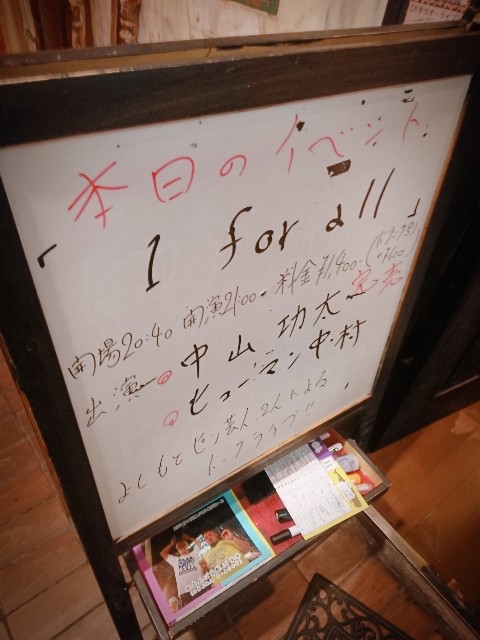 本日のイベント
「1 for all」
開場20:40 開演21:00 料金¥1,400-
完売
出演 中山 功太
ヒューマン中村
よしもとピン芸人2人による
トークライブ!!